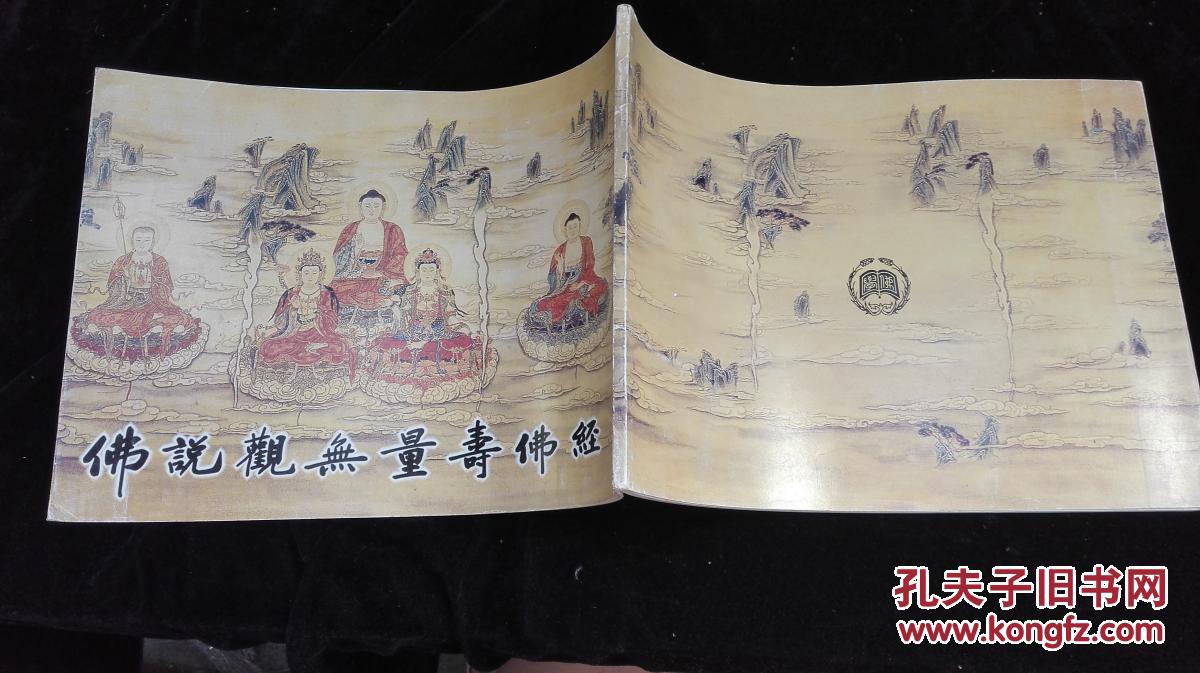 佛説觀無量壽佛経
孔夫子旧书网
www.kongfz.com